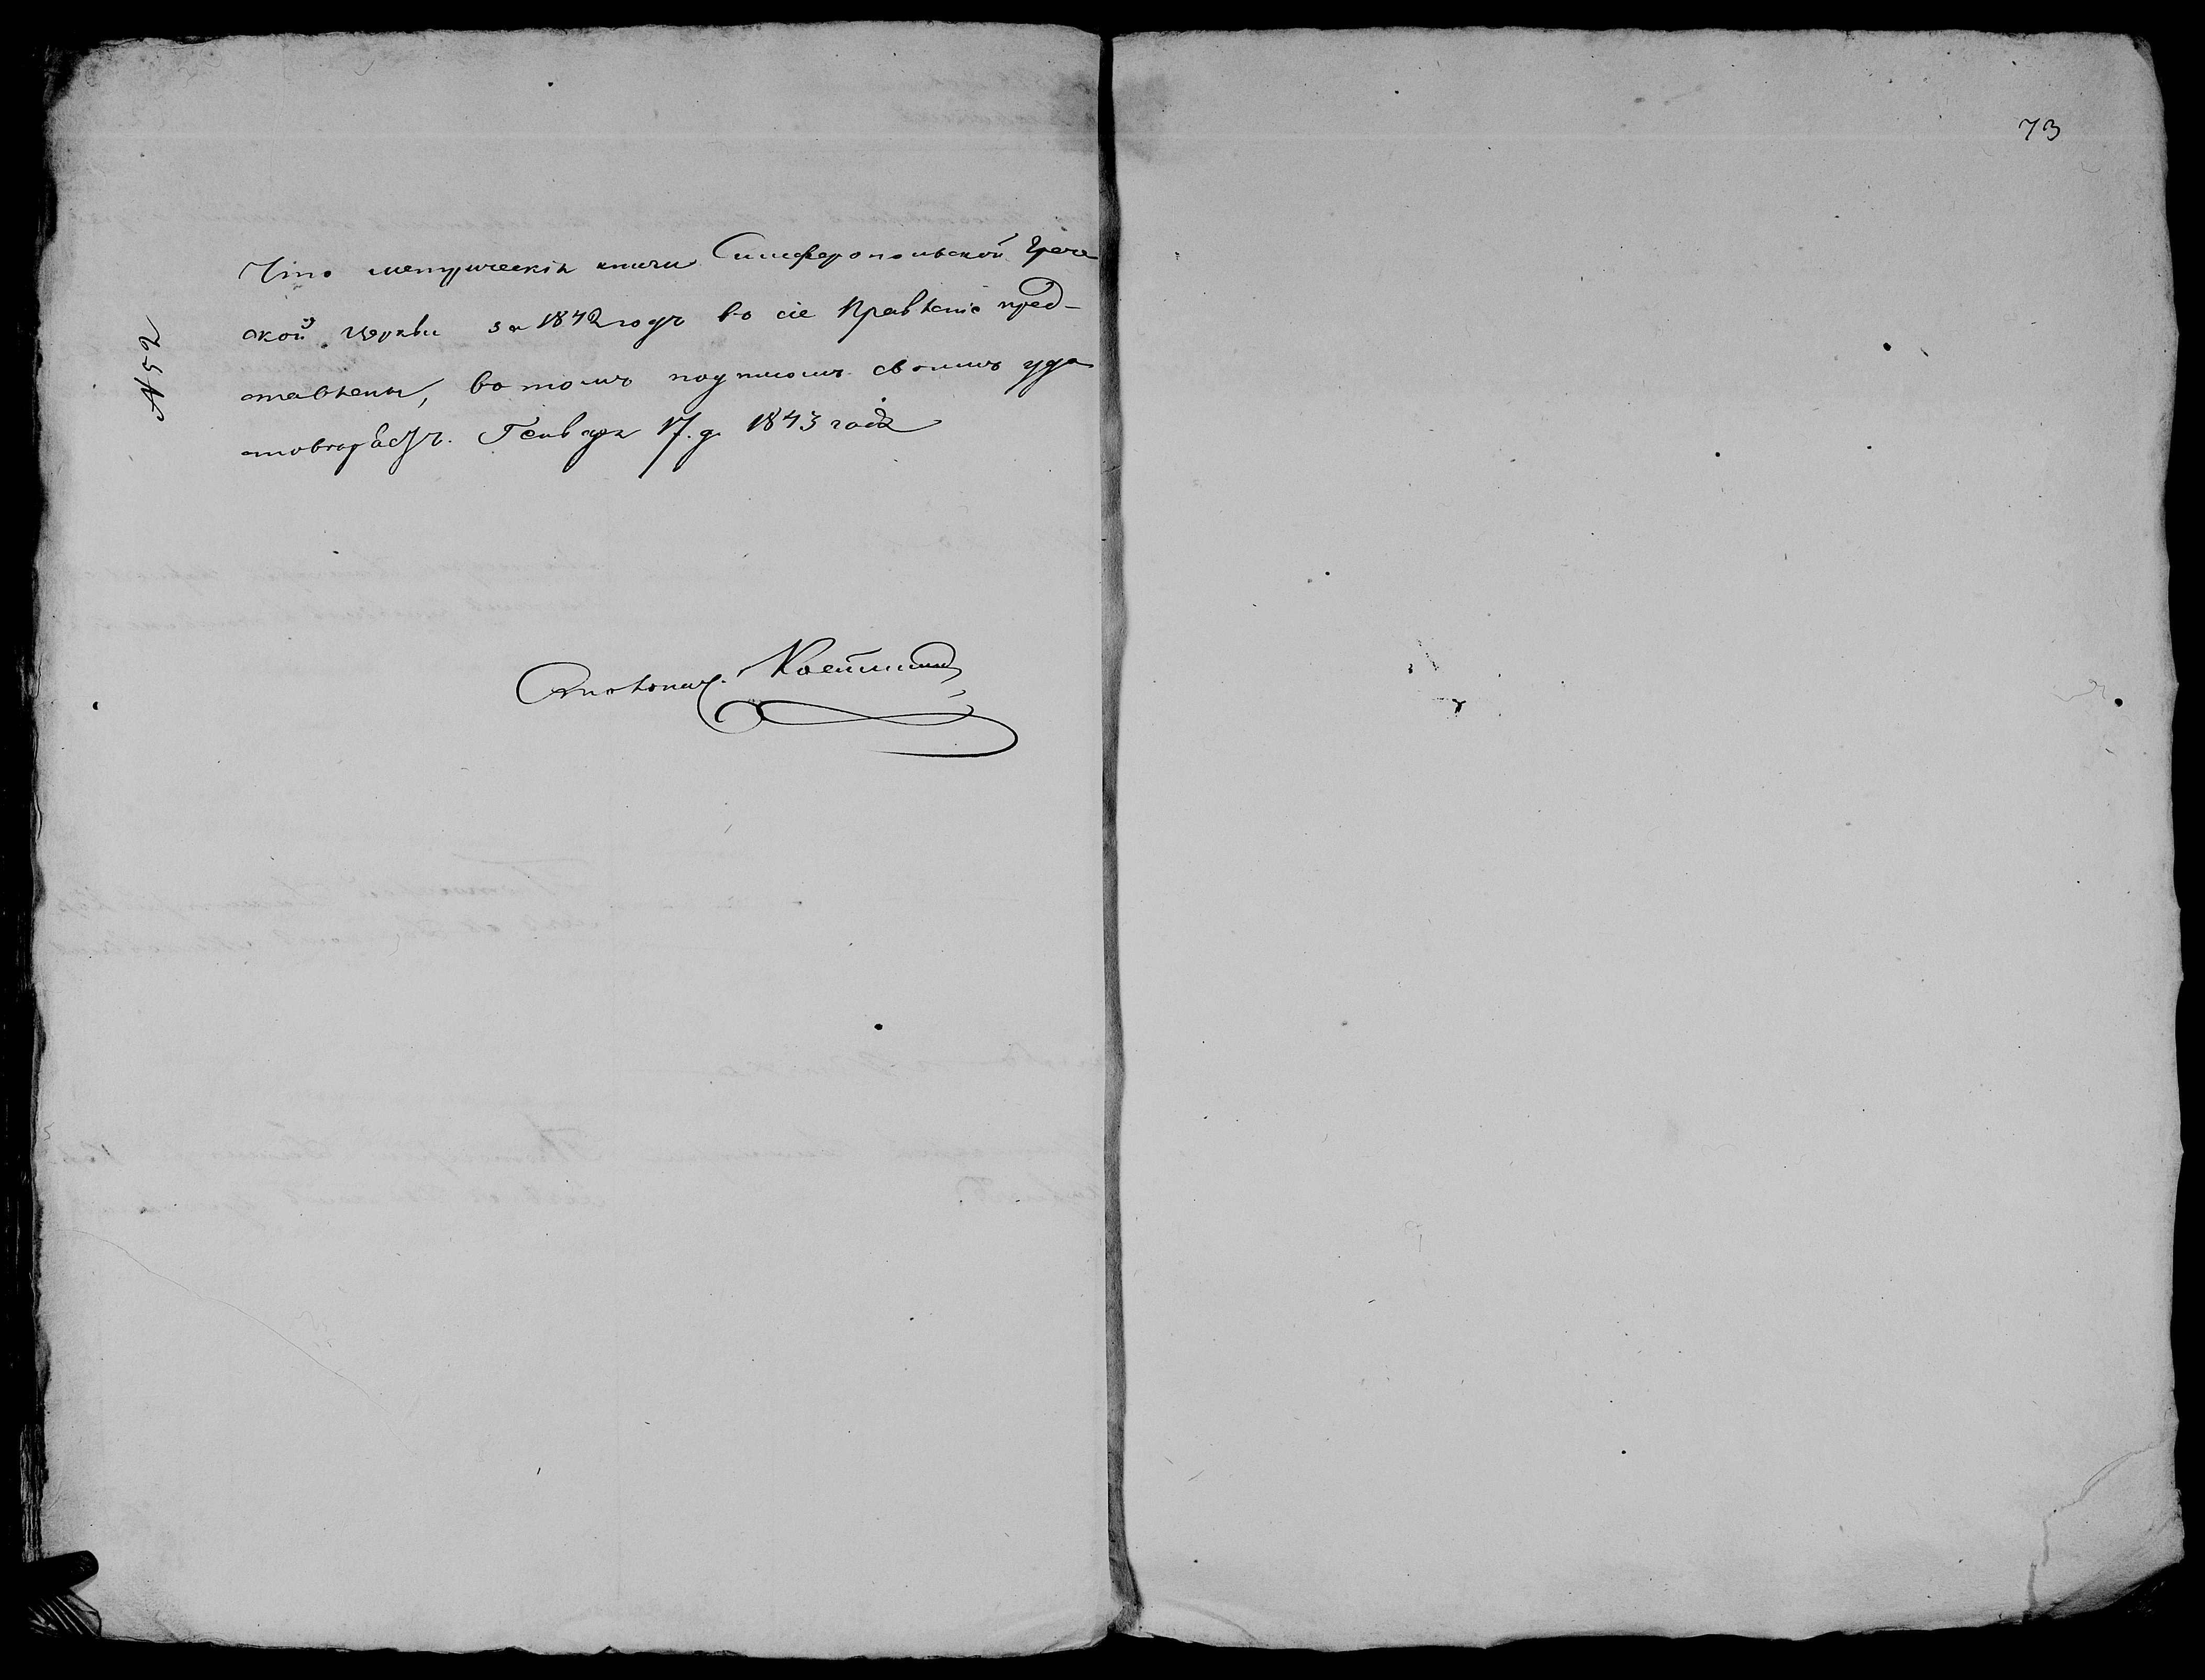 73
№ 52
Что метрическія книги Симферопольской Грече
ской церкви за 1842 годъ во сіе Правленіе пред-
ставлены, въ томъ подписомъ своимъ удо
стоверяетъ. Генваря 17. д. 1843 года